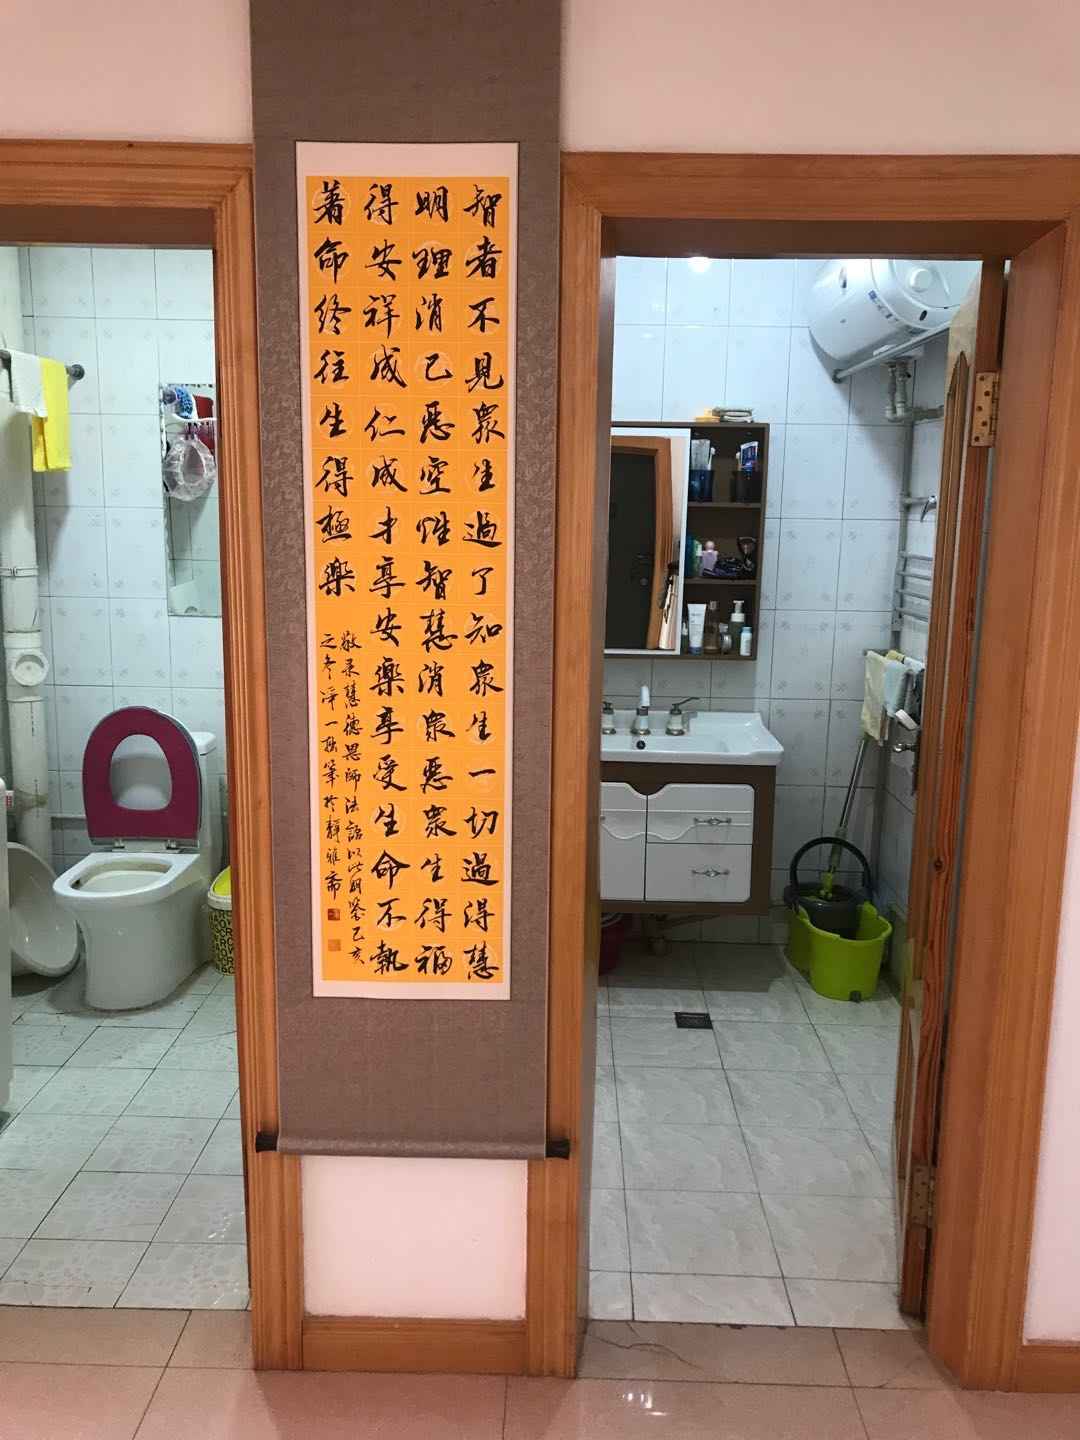 智者不見眾生過了知眾生一切過得慧
明理消己惡空性智慧消眾惡眾生得福
得安祥成仁成才享安樂享受生命不執
著命終往生得極樂
敬录慧德恩師法語以此明鉴己亥
之冬淨一執筆於靜雅斋